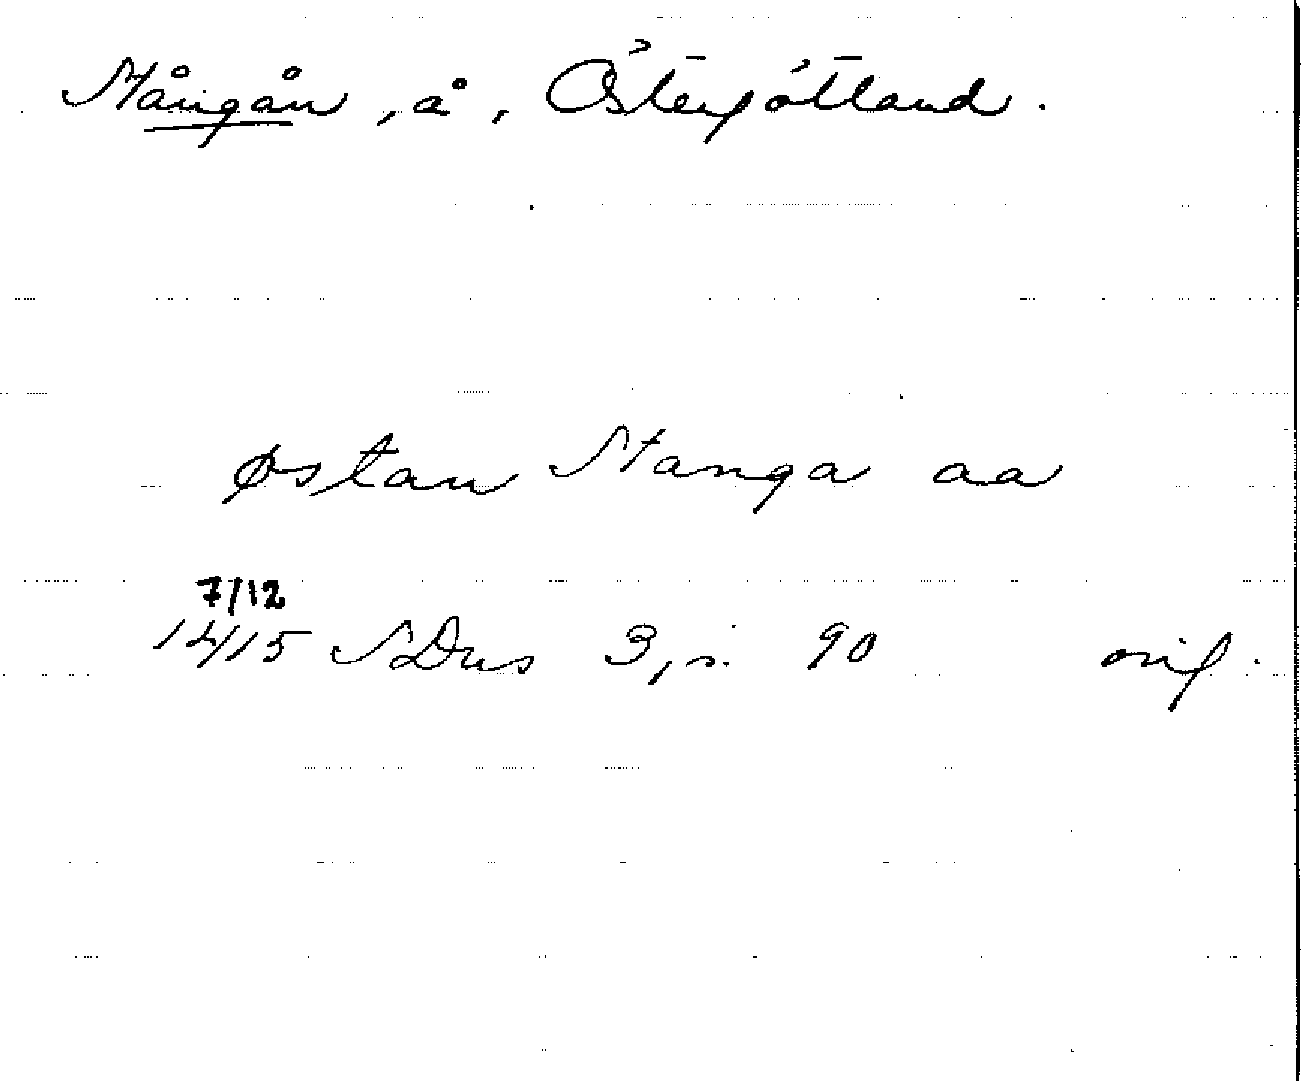 Stångån, å, Östergötland.
østan Stanga aa
7/12
1415 SDns 3, s. 90 orig.